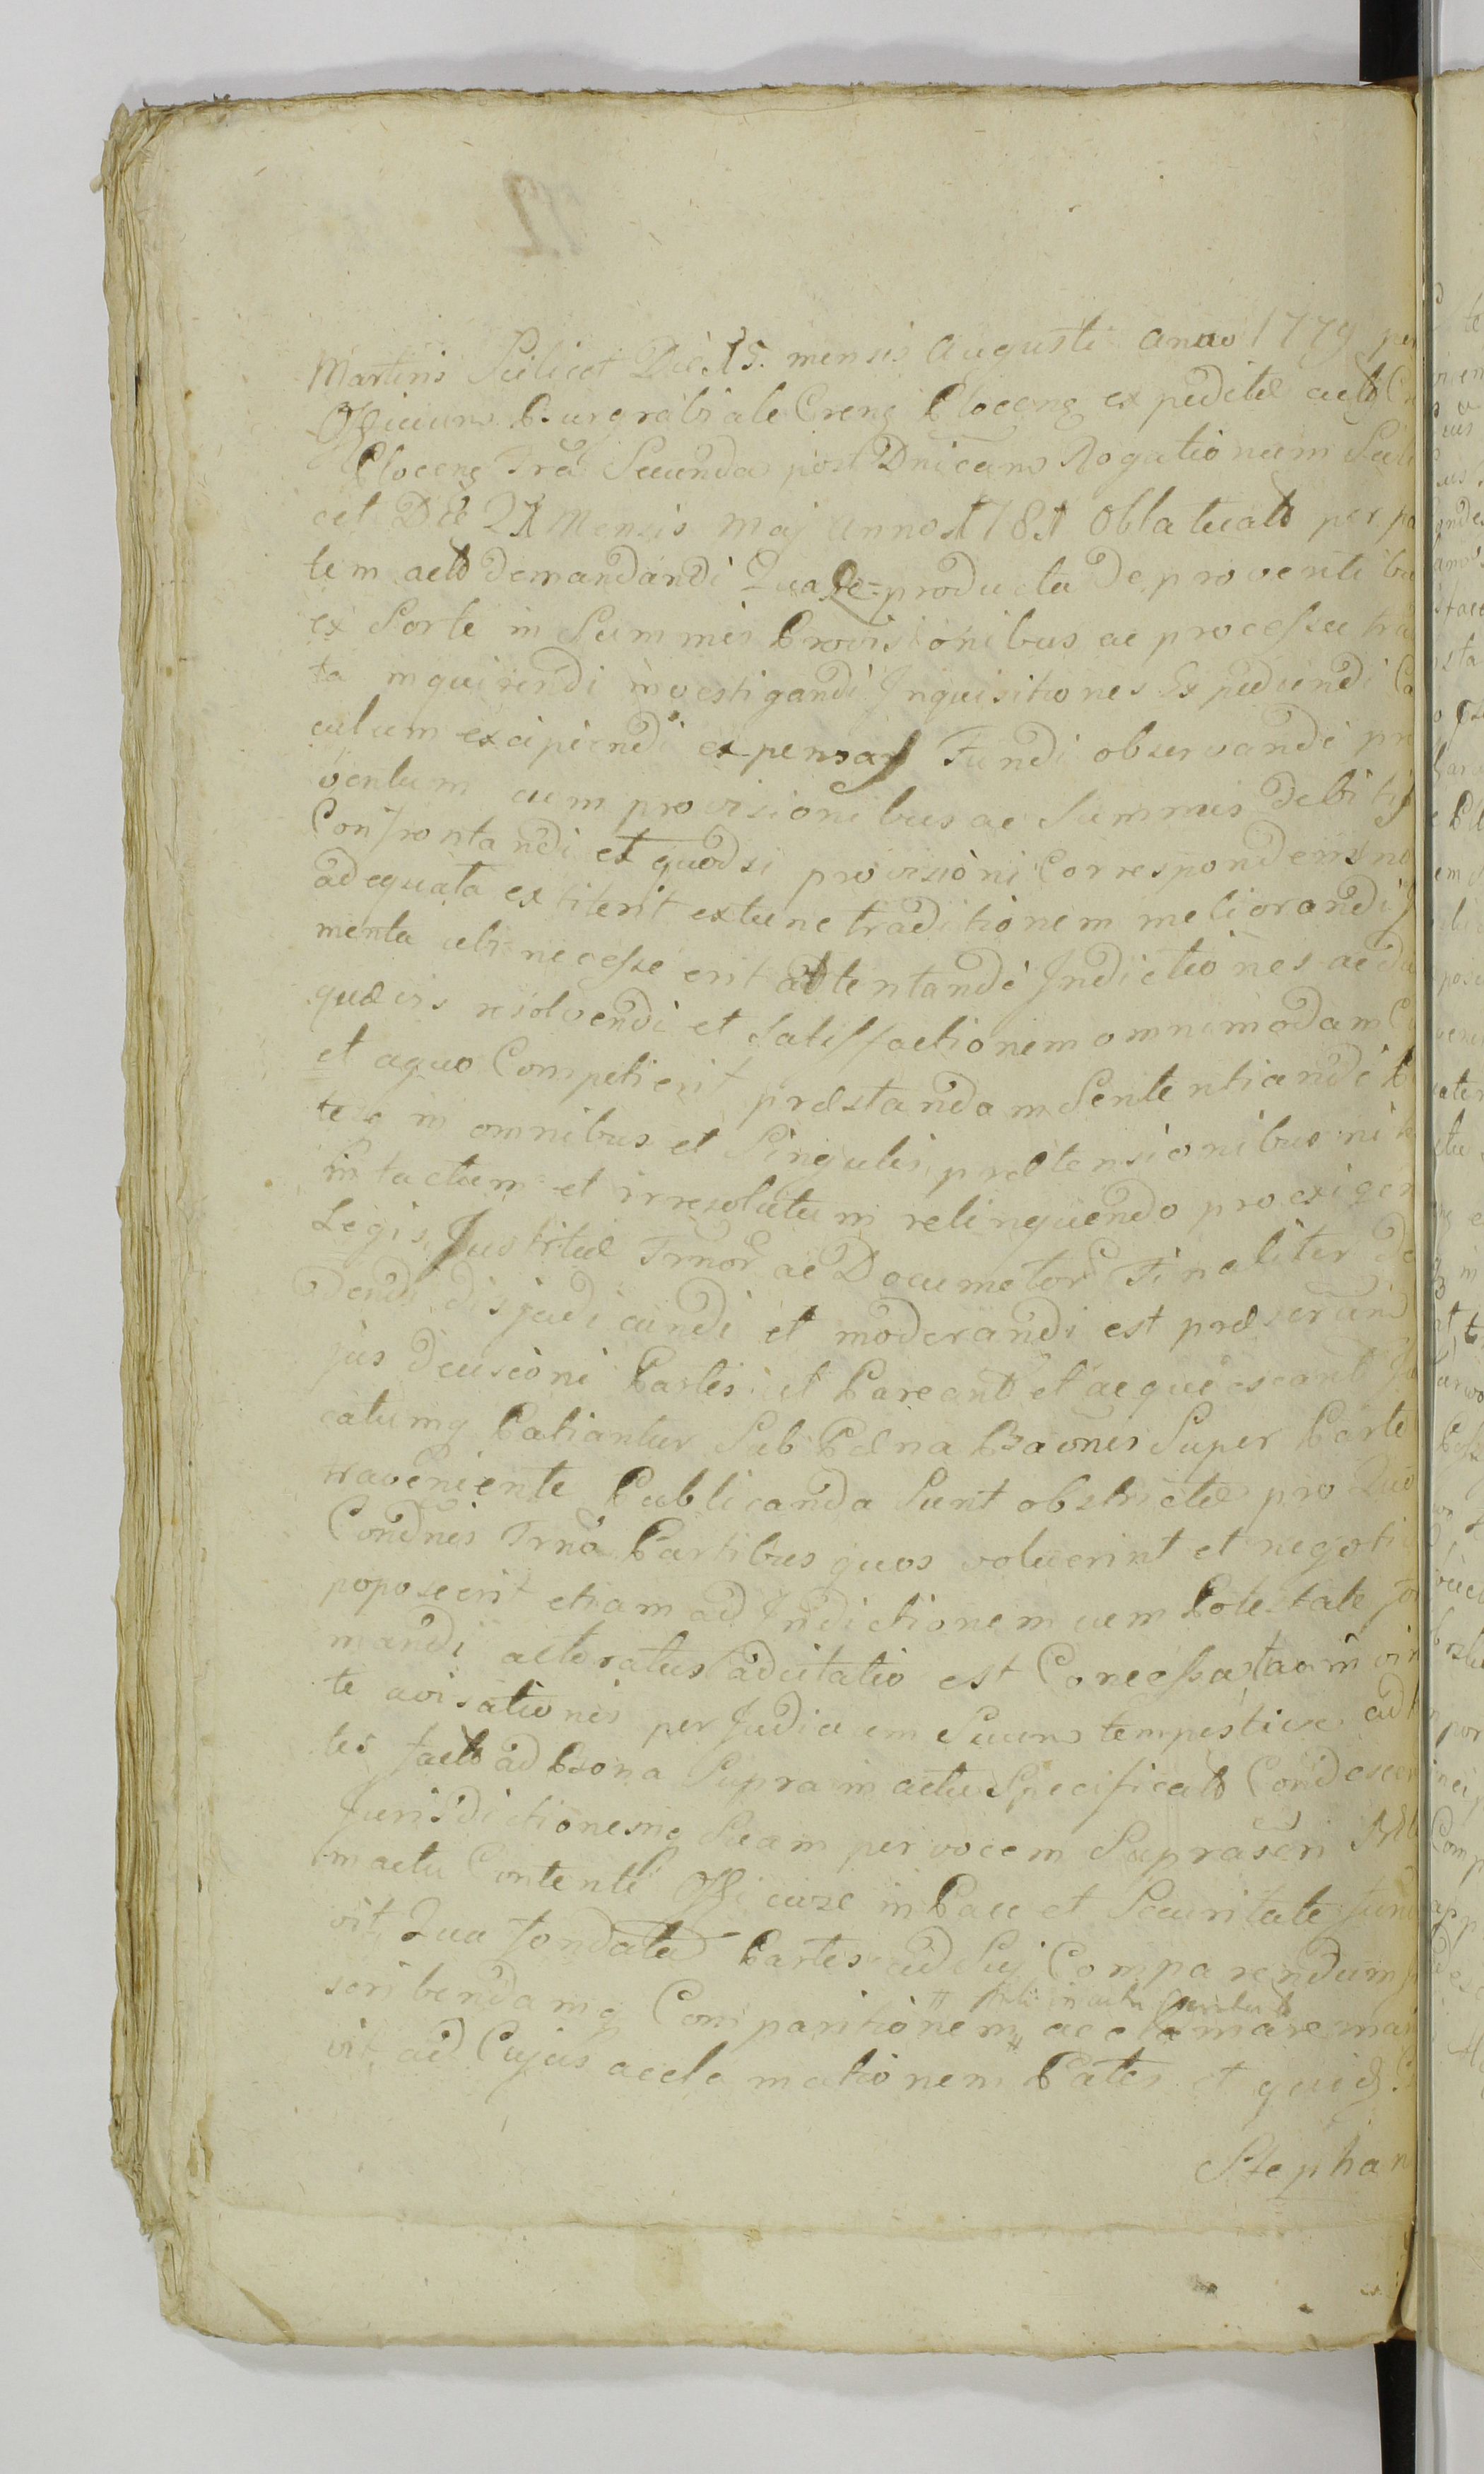 Martini Scilicet Die 15. mensis Augusti anno 1779 per
Officium Burgrabiale Creng Ploceng expeditæ actb
Ploceng Fra Secunda post Dnicam Rogationum Scili
cet Die 21 Mensis Maj Anno 1781 Oblatuatb per pa
tem actb demandandi Qua Re=producta De proventibu
ex Sorte in Summis Provisionibus ac processu tra
ta inquirendi investigandi Inquisitiones Expediendi Ca
culum excipiendi expensas Fundi observandi pro
ventum cum provisionibus ac Summis Debitis
Confrontandi et quodsi provisioni Correspondens no
adequata extiterit extunc traditionem meliorandi
menta ubi necesse erit attentandi Indictiones ac
quævis resolvendi et Satisfactionem omnimodam
et aquo Competierit præstandam Sententiandi
tes in omnibus et Singulis prætensionibus ni
intactum et irresolutum relinquendo pro exigen
Legis Justitiæ Frnor ac Documetor Finaliter De
dendi disjudicandi et moderandi est præserum
jus decisioni Partes ut Pareant et acquiescant
catumq Patiantur Sub Pæna Baonis Super Parte
traveniente Publicanda Sunt obstrictæ pro Quo
Condnis Frno Partibus quos voluerint et negotiu
poposcerit etiam ad Indictionem cum Potestate for
mandi actoratus adcitatio est Concessa tam in vim
te avisationis per Judicium Suum tempestive ad
tes factb ad Bona Supra in actu Specificatb Condescen
Jurisdictionemq Suam per vocem Suprascri
in actu Contenti Officiose in Pace et Securitate fund
vit Qua fondata Partes ad Suj Comparendum
scribendamq Comparitionem acclamare man
vit, ad Cujus acclamationem Partes et quid.
Stephan